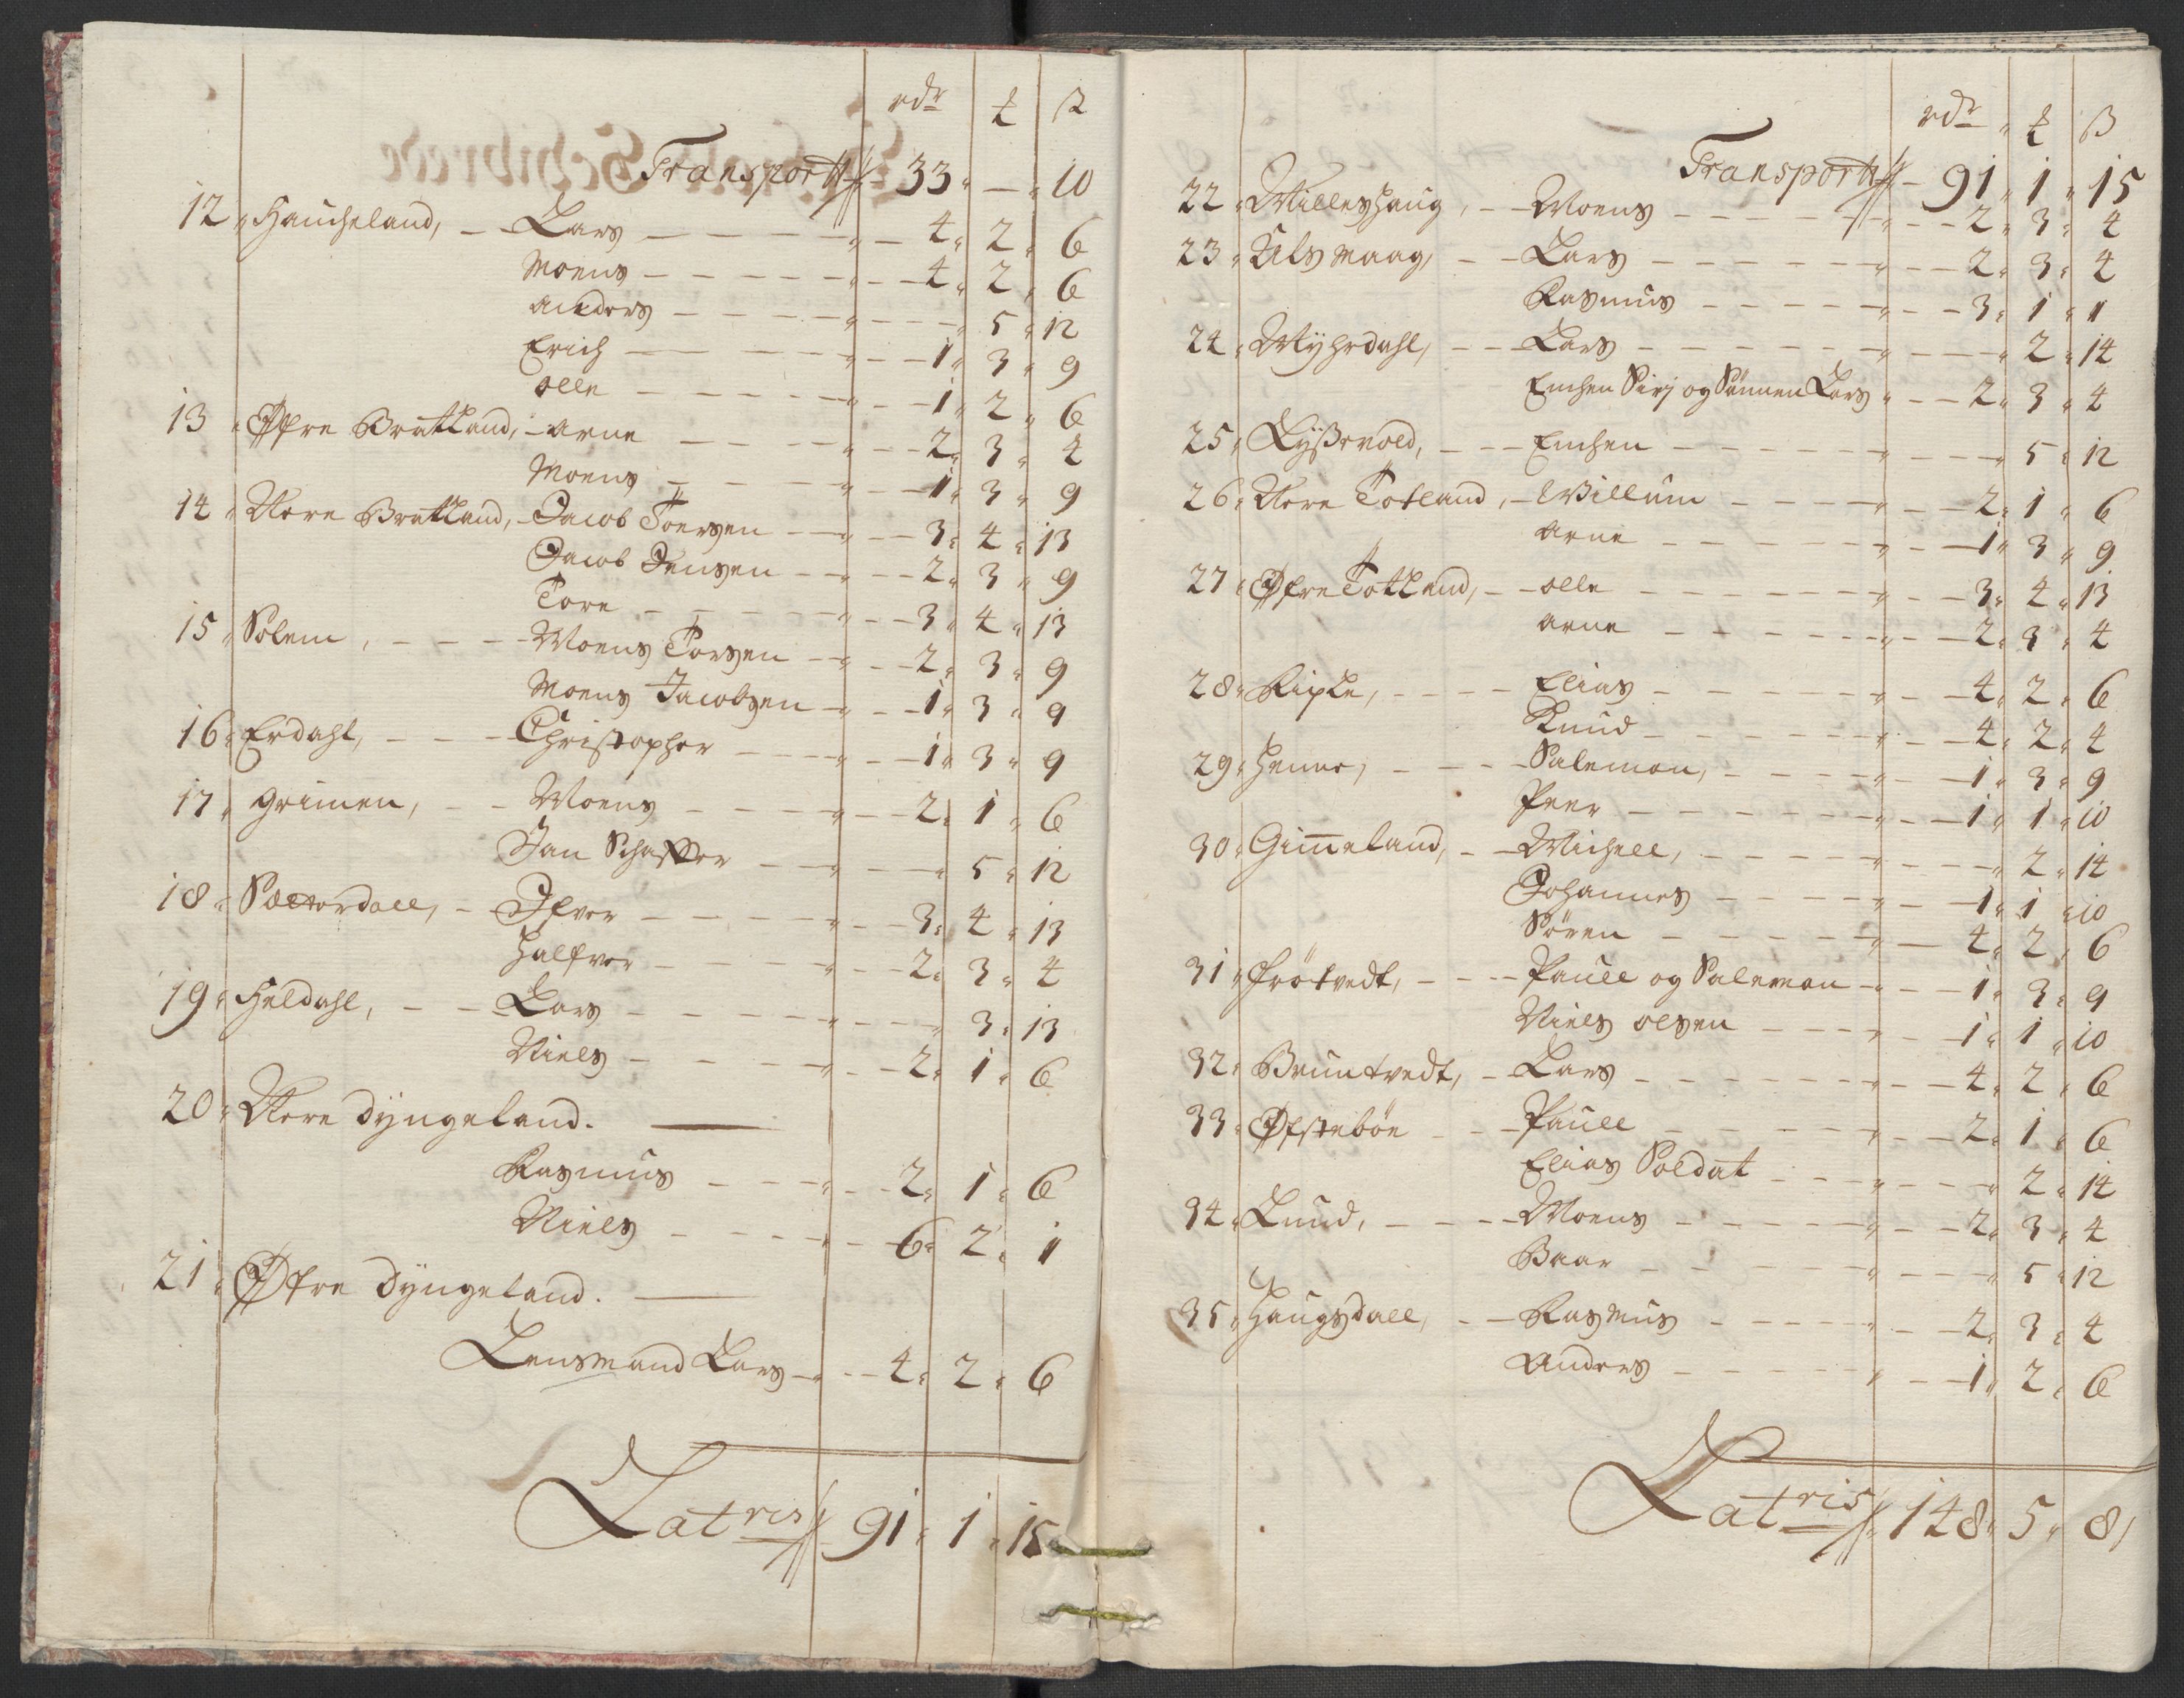 rdr ₺ ß
Transport 33 " — " 10
12 " Haucheland, Lars 4 " 2 " 6
Moens 4 " 2 " 6
Anders 5 " 12
Erich 1 " 3 " 9
olle 1 " 2 " 6
13 " Øfre Bratland, arne 2 " 3 " 4
Moens 1 " 3 " 9
14 " Nere Bratland, Jacob Toersen 3 " 4 " 13
Jacob Jensen 2 " 3 " 9
Tore 3 " 4 " 13
15 " Solem, Moens Torsen 2 " 3 " 9
Moens Jacobsen 1 " 3 " 9
16 " Erdahl, Christopher 1 " 3 " 9
17 " Grimen, Moens 2 " 1 " 6
Jan Schaffer 5 " 12
18 " Sætterdall, Ifver 3 " 4 " 13
Halfver 2 " 3 " 4
19 " Heldahl, Lars 3 " 13
Niels 2 " 1 " 6
20 " Nere dÿngeland.
Rasmus 2 " 1 " 6
Niels 6 " 2 " 1
21 " Øfre dÿngeland.
Lensmand Lars 4 " 2 " 6
Latris 91 " 1 " 15
rdr ₺ ß
Transport 91 " 1 " 15
22 " Milleshaug, Moens 2 " 3 " 4
23 " Ulsmaag, Lars 2 " 3 " 4
Rasmus 3 " 1 " 1
24 " Mÿhrdahl, Lars 2 " 14
Enchen Sirj og Sønnen Lars 2 " 3 " 4
25 " Lÿßevold, Enchen 5 " 12
26 " Nere Totland, Willum 2 " 1 " 6
arne 1 " 3 " 9
27 " Øfre Totland, olle 3 " 4 " 13
arne 2 " 3 " 4
28 " Riple, Elias 4 " 2 " 6
Knud 4 " 2 " 4
29 " Henne, Salemon, 1 " 3 " 9
Peer 1 " 1 " 10
30 " Gim̅eland, Michell, 2 " 14
Johannes 1 " 1 " 10
Sören 4 " 2 " 6
31 " Frötvedt, Paull og Salemon 1 " 3 " 9
Niels olsen 1 " 1 " 10
32 " Bruntvedt, Lars 4 " 2 " 6
33 " Øfsteböe Paull 2 " 1 " 6
Elias Soldat 2 " 14
34 " Lund, Moens 2 " 3 " 4
Baar 5 " 12
35 " Haugsdall, Rasmus 2 " 3 " 4
Anders 1 " 2 " 6
Latris 148 " 5 " 8